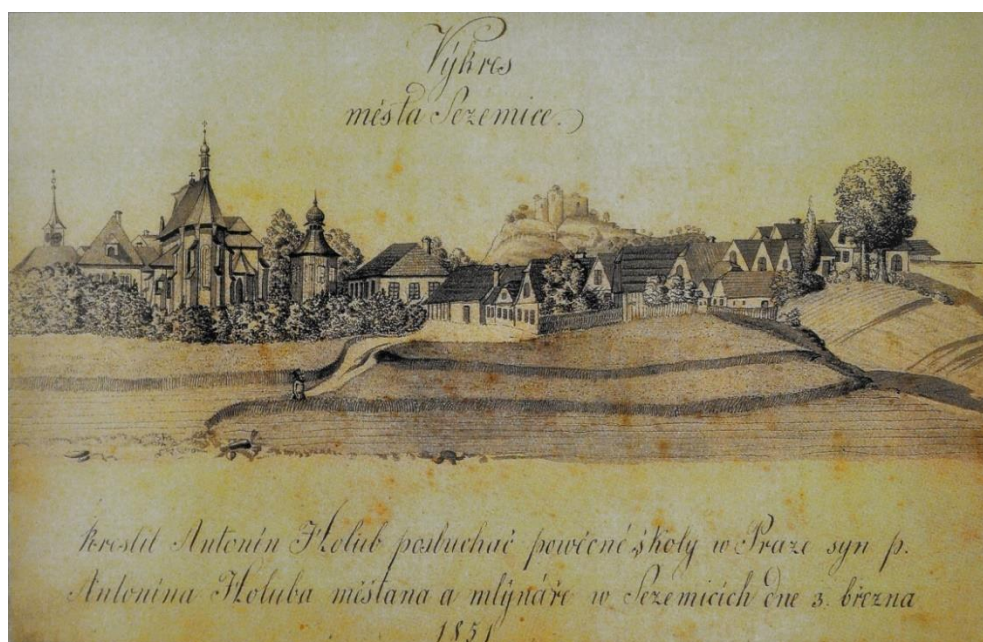 Výkres
města Sezemice.
Kreslil Antonín Holub posluchač powěcné školy w Praze syn p.
Antonína Holuba měšťana a mlynáře w Sezemicích dne 3. března
1851